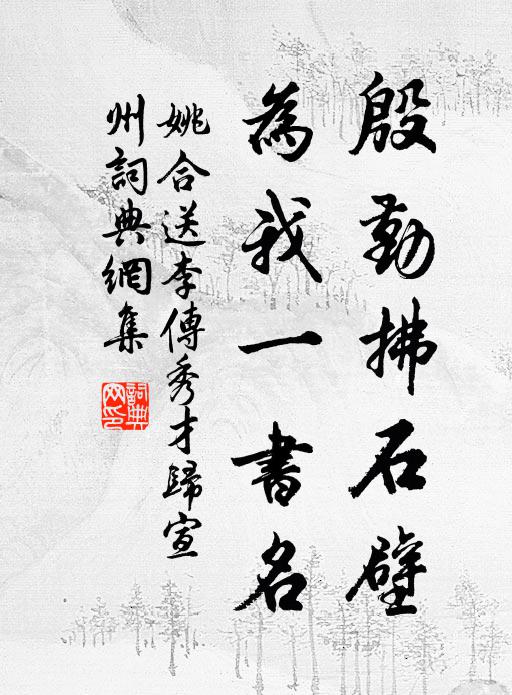 殷勤拂石壁
為我一書名
姚合送李傅秀才歸宣
州詞典網集
詞典网印